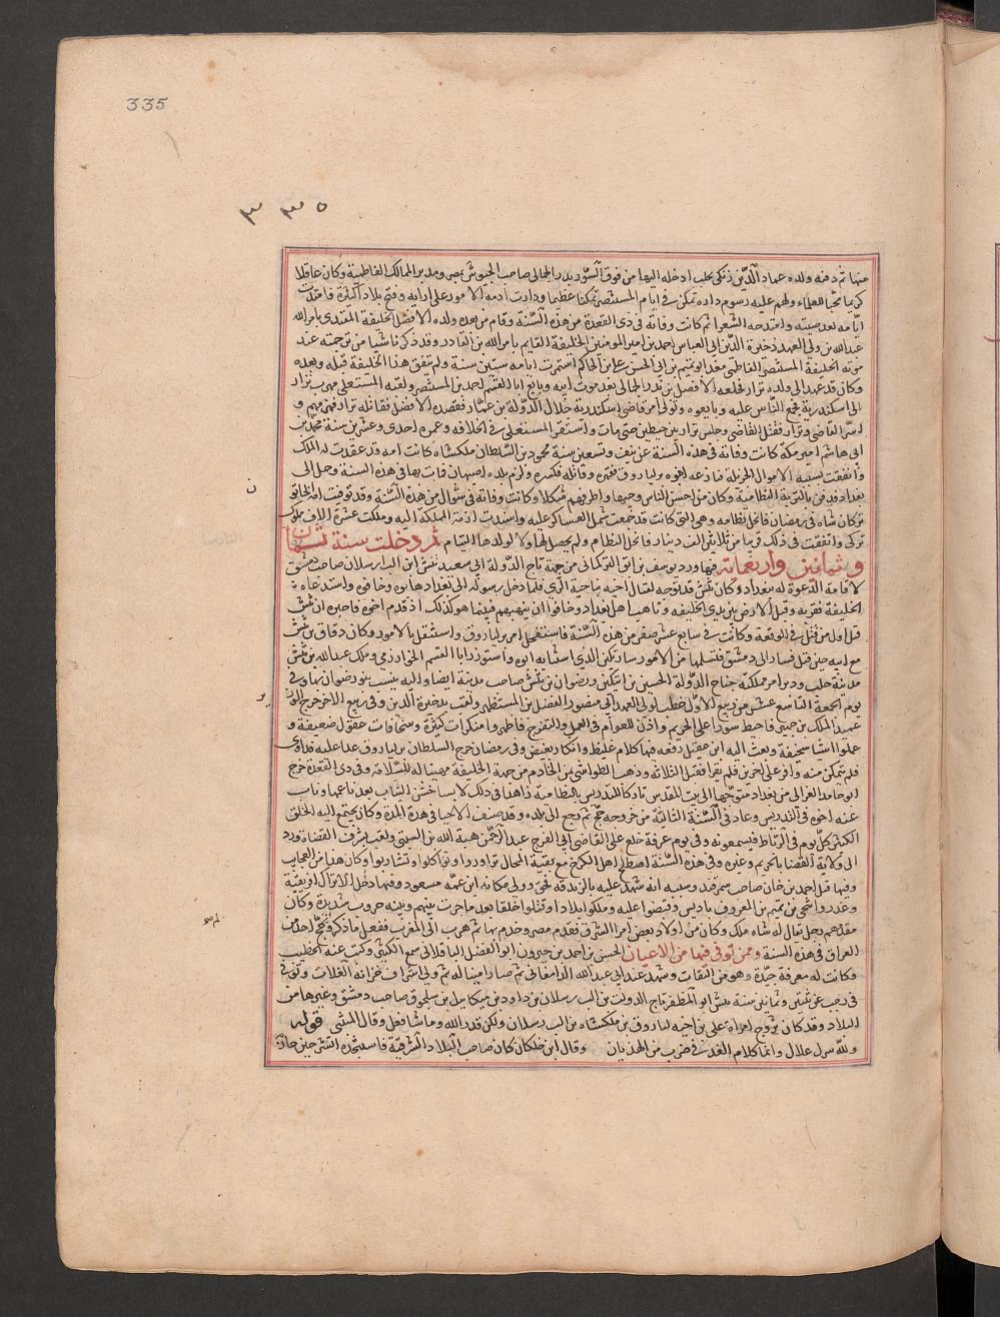 335
٣٣٥
منها ثم دفنه ولده عماد الدين زنكي بحلب ادخله اليها من فوق السور بدر الجمالي صاحب الجيوش بمصر ومدبر الممالك الفاطمية وكان عاقلا
كريما محبا للعلماء ولهم عليه رسوم داره تمكن في ايام المستنصر تمكنا عظيما ودارت ازمة الامور على ارايه وفتح بلادا كثيرة وامتدت
ايامه وبعد صيته وامتدحه الشعرا ثم كانت وفاته في ذي القعدة من هذه السنة وقام من بعده ولده الافضل الخليفة المقتدي بامر الله
عبد الله بن ولي العهد ذخيرة الدين ابي العباس احمد بن امير المؤمنين الخليفة القايم بامر الله بن القادر وقد ذكرنا شيا من ترجمته عند
موته الخليفة المستنصر الفاطمي معد ابو تميم بن ابي الحسن علي بن الحاكم استمرت ايامه ستين سنة ولم يتفق هذا الخليفة قبله ولا بعده
وكان قد عهد الى ولده نزار فخلعه الافضل بن بدر الجمالي بعد موت ابيه وبايع ابا القسم احمد بن المستنصر ولقبه المستعلي فهرب نزار
الى اسكندرية فجمع الناس عليه وبايعوه وتولى امره قاضي اسكندرية جلال الدولة بن عمار فقصده الافضل فقاتله نزار فهزمهم و
اسر القاضي ونزار فقتل القاضي وحبس نزار بين حيطين حتى مات واستقر المستعلي في الخلافه وعمره احدى وعشرين سنة محمد بن
ابي هاشم امير مكة كانت وفاته في هذه السنة عن نيف وتسعين سنة محمود بن السلطان ملكشاه كانت امه قد عقدت له الملك
وانفقت بسببه الاموال الجزيلة فنازعه اخوه بركياروق فقهره وقاتله فكسره ولزم بلده اصبهان فمات بها في هذه السنة وحمل الى
بغداد فدفن بالتربة النظامية وكان من احسن الناس وجها واظرفهم شكلا وكانت وفاته في شوال من هذه السنة وقد توفيت امه الخاتون
تركان شاه في رمضان فانحل نظامه وهي التي كانت قد جمعت شمل العساكر عليه واسندت ازمة المملكة اليه وملكت عشرة الاف مملوك
تركي وانفقت في ذلك قريبا من ثلاثة الف الف دينار فانحل النظام ولم يحصل لها ولا لولدها التيام ثم دخلت سنة ثمان
وثمانين واربعماية فيها ورد يوسف بن ابق التركماني من جهة تاج الدولة ابي سعيد تتش ابن الب ارسلان صاحب دمشق
لاقامة الدعوة له ببغداد وكان تتش قد توجه لقتال اخيه بناحية الري فلما دخل رسوله الى بغداد هابوه وخافوه واستدعاه
الخليفة فقربه وقبل الارض بين يدي الخليفة وتاهب اهل بغداد وخافوا ان ينهبهم فبينما هو كذلك اذ قدم اخوه فاخبره ان تتش
قتل اول من قتل في الوقعة وكانت في سابع عشر صفر من هذه السنة فاستفحل امر بركياروق واستقل بالامور وكان دقاق بن تتش
مع ابيه حين قتل فسار الى دمشق فتسلمها من الامير ساوتكين الذي استنابه ابوه واستوزر ابا القسم الخوارزمي وملك عبد الله بن تتش
مدينة حلب ودبر امر مملكته جناح الدولة الحسين بن ايتكين ورضوان بن تتش صاحب مدينة ايضا واليه ينسب بنو رضوان بها وفي
يوم الجمعة التاسع عشر من ربيع الاول خطب لولي العهد ابي منصور الفضل بن المستظهر ولقب بذخيرة الدين وفي ربيع الاخر خرج الوزير
عميد الملك بن جهير فاختط سورا على الحريم واذن للعوام في العمل والتفرج فاظهروا منكرات كثيرة وسخافات عقول ضعيفة و
عملوا اشيا سخيفة وبعث اليه ابن عقيل رقعه فيها كلام غليظ وانكار بغيض وفي رمضان خرج السلطان بركياروق فعدا عليه فداوي
فلم يتمكن منه واقر على اخرين فلم يقرا فقتل الثلاثه وذهب الطواشي من الخادم من جهة الخليفة مهنيا له بالسلامة وفي ذي القعدة خرج
ابو حامد الغزالي من بغداد متوجها الى بيت المقدس تاركا للتدريس بالنظامية زاهدا في ذلك لابسا خشن الثياب بعد ناعمها وناب
عنه اخوه في التدريس وعاد في السنة الثالثة من خروجه حج ثم رجع الى بلده وقد صنف الاحيا في هذه المدة وكان يجتمع اليه الخلق
الكثير كل يوم في الرباط فيسمعونه وفي يوم عرفة خلع على القاضي ابي الفرج عبد الرحمن هبة الله بن البستي ولقب بشرف القضاة ورد
الى ولاية القضا بالحريم وغيره وفي هذه السنة اصطلح اهل الكرخ مع بقية المحال تزاوروا وتواكلوا وتشاربوا وكان هذا من العجايب
وفيها قتل احمد بن خان صاحب سمرقند وسببه انه شهد عليه بالزندقه فخنق وولي مكانه ابن عمه مسعود وفيها دخل الاتراك افريقية
وغدروا بيحيى بن تميم بن المعروف باديس وقبضوا عليه وملكوا بلادا وقتلوا خلقا بعد ما جرت بينهم وبينه حروب شديدة وكان
مقدمهم رجل يقال له شاه ملك وكان من اولاد بعض امرا الشرق فقدم مصر وخدم بها ثم هرب الى المغرب ففعل ما ذكر ولم يحج احد من
العراق في هذه السنة وممن توفي فيها من الاعيان الحسن بن احمد بن خيرون ابو الفضل الباقلاني سمع الكثير وكتب عنه الخطيب
وكانت له معرفة جيدة وهو من الثقات وشهد عند ابي عبد الله الدامغاني ثم صار امينا له ثم ولي اشراف خزانة الغلات وتوفي
في رجب عن ثنتين وثمانين سنة تتش ابو المظفر تاج الدولة بن الب ارسلان بن داود بن ميكاييل بن سلجوق صاحب دمشق وغيرها من
البلاد وقد كان تزوج امراة على بن اخيه بركياروق بن ملكشاه بن الب ارسلان ولكن قدر الله وما شا فعل وقال المتنبي قوله
ولله سر في علاك وانما كلام العدى ضرب من الهذيان وقال ابن خلكان كان صاحب البلاد الشرقية فاستنجده اتسز حين حاول